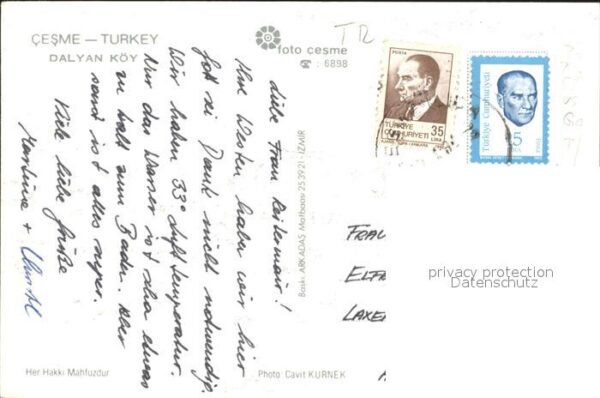 ÇEŞME — TURKEY
DALYAN KÖY
foto çeşme
☎ : 6898
TR
POSTA
TÜRKİYE
CUMHURİYETİ
35
LİRA
Türkiye Cumhuriyeti
5
Liebe Frau
Ihre Westen haben wir hier
Gott sei Dank nicht notwendig.
Wir haben 33° Lufttemperatur.
Nur das Wasser ist schon etwas
zu kalt zum Baden. Aber
sonst ist alles super.
Viele liebe Grüße
Martina + Christl
Baskı ARKADAŞ Matbaası 253921-İZMİR
FRAU
ELF
LAXE
privacy protection
Datenschutz
Her Hakkı Mahfuzdur
Photo: Cavit KÜRNEK